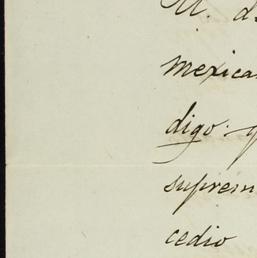 M. d
mexica
digo: q
suprem
cedio